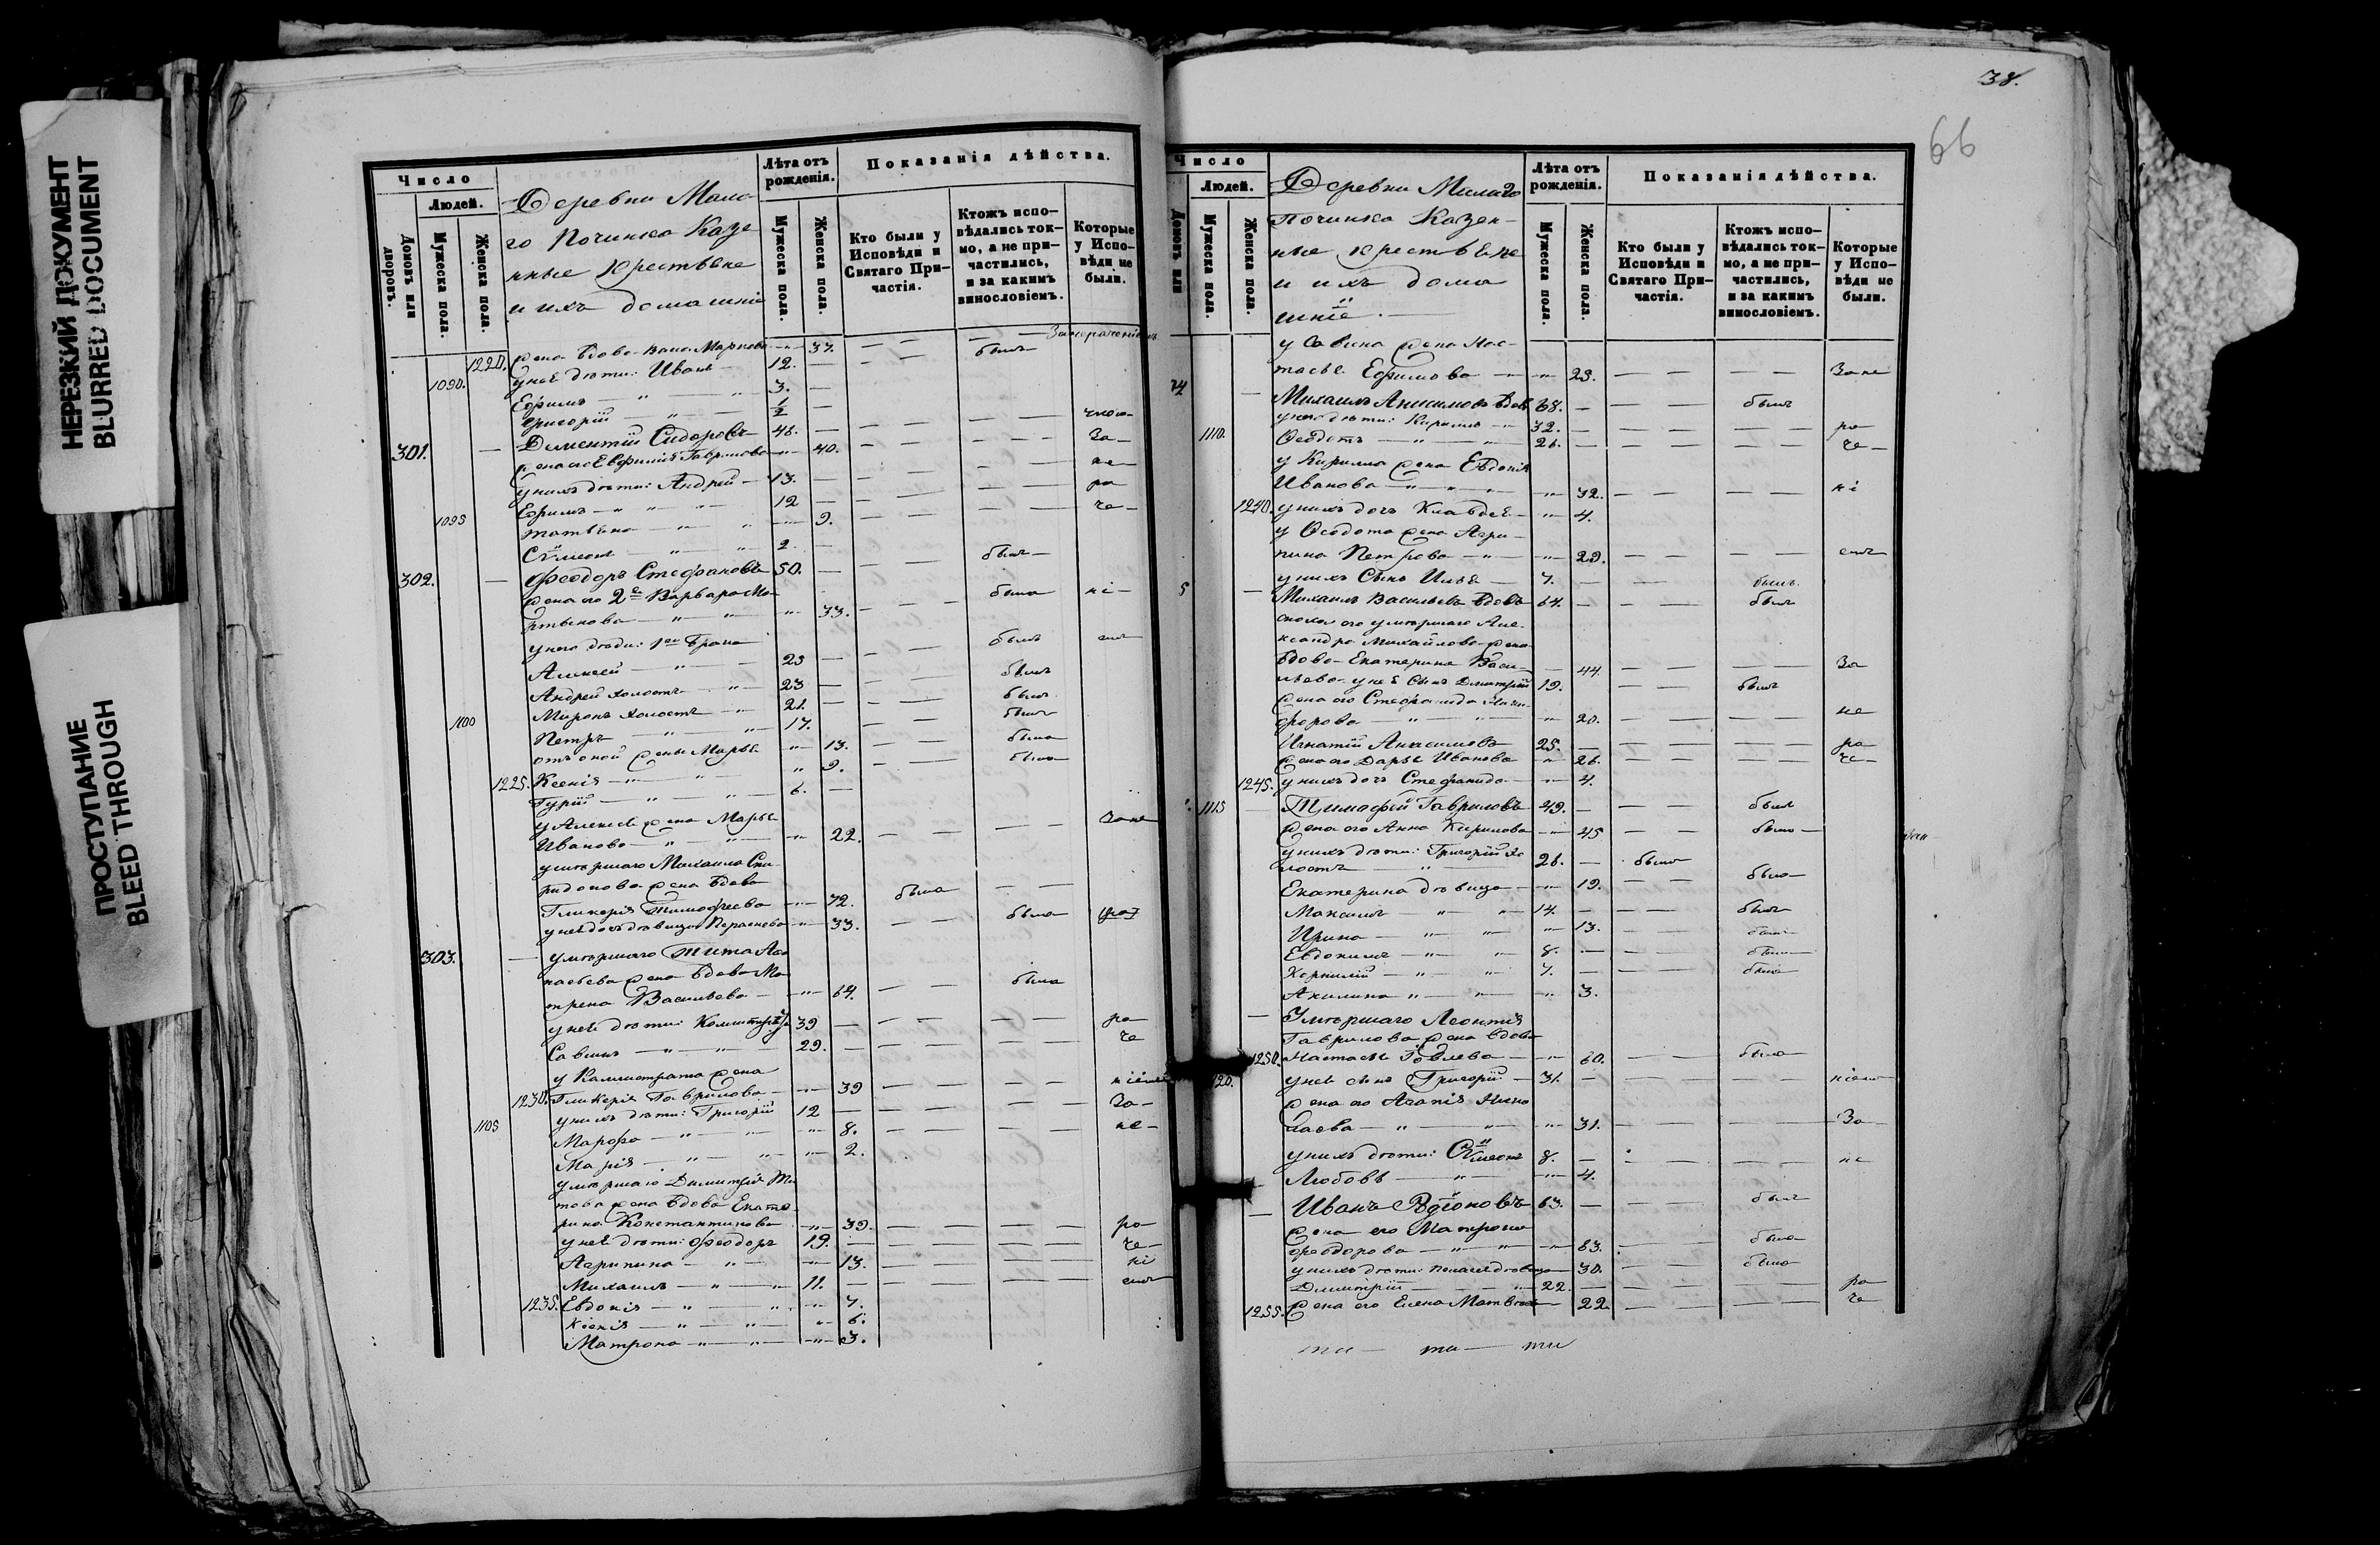 НЕРЕЗКИЙ ДОКУМЕНТ
BLURRED DOCUMENT
ПРОСТУПАНИЕ
BLEED THROUGH
Число
Людей.
Домовъ или дворовъ.
Мужеска пола.
Женска пола.
Деревни Мала-
го Починка Казе
нные крестьяне
и ихъ домашніе
Лѣта отъ рожденія.
Мужеска пола.
Женска пола.
Показанія дѣйства.
Кто были у Исповѣди и Святаго При-частія.
Ктожъ испо-вѣдались ток-мо, а не при-частились, и за какимъ винословіемъ.
Которые у Испо-вѣди не были.
1220. жена вдова Маркова 37.
1090. у нея дѣти: Иванъ 12.
Ефимъ 3.
Григорій 1/2
301. Дементій Сидоровъ 48.
жена его Евфимія Гаврилова 40. За-
у нихъ дѣти: Андрей 13. не-
Ефимъ 12 ра
1095 Татьяна 9. че-
Сѵмеонъ 2.
302. Феодоръ Стефановъ 50. былъ
жена его 2я Варвара Ма-
ртынова 33. была ні-
у него дѣти: 1го брака
Алексей 25 былъ емъ
Андрей холостъ 23 былъ
1100 Миронъ холостъ 21. былъ
Петръ 17. былъ
отъ оной жены Марья 13. была
1225. Ксенія 9. была
Гурій 6.
у Алексея жена Марья
Иванова 22. Зане
умершаго Михаила Спи-
ридонова жена вдова
Гликерія Тимофеева 72. была
у нея дочь девица 33. была
303. умершаго Тита Афа
насьева жена вдова Ма
трена Васильева 64. была
у нея дѣти: Калистратъ 39 ра
Савинъ 29. че
у Каллистрата жена
1230. Гликерія Гаврилова 39 ніемъ
1105 у нихъ дѣти: Григорій 12 За-
Марфа 8. не-
Марія 2.
умершаго Димитрія Ти
това жена вдова Екате
рина Константинова 39. ра
у нея дѣти: Феодоръ 19. че-
Агрипина 13. ні
Михаилъ 11. емъ
1235. Евдокія 7.
Ксенія 6.
Матрона 3.
38.
66
Число
Людей.
Домовъ или
Мужеска пола.
Женска пола.
Деревни Малаго
Починка Казен-
ные крестьяне
и ихъ дома
шніе.
Лѣта отъ рожденія.
Мужеска пола.
Женска пола.
Показанія дѣйства.
Кто были у Исповѣди и Святаго При-частія.
Ктожъ испо-вѣдались ток-мо, а не при-частились, и за какимъ винословіемъ.
Которые у Испо-вѣди не были.
у Савина жена Нас-
тасья Ефимова 23. Зане
Михаилъ Анисимовъ вдовъ 68. былъ
у него дѣти: Кирилъ 32. ра
1110. Феодотъ 26. че-
у Кирилла жена Евдокія
Иванова 32. ні
1240. у нихъ дочь Клавдія 4.
у Феодота жена Агри-
пина Петрова 29. емъ
у нихъ сынъ Илья 7. былъ.
5 Михаилъ Васильевъ вдовъ 64. былъ
сноха его умершаго Але-
ксандра Михайлова жена
вдова Екатерина Васи- 44. За
льева у нея сынъ Дмитрій 19. былъ
жена его Стефанида
20. не
Игнатій Анисимовъ 25. ра
жена его Дарья Иванова 26. че-
1245. у нихъ дочь Стефанида 4.
1115 Тимофей Гавриловъ 49. былъ
жена его Анна Кирилова 45 была
у нихъ дѣти: Григорій хо
лостъ 26. былъ
Екатерина девица 19. была
Максимъ 14. былъ
Ирина 13.
Евдокимъ 8. былъ
Корнилій 7. былъ
Акилина 3.
Умершаго Леонтія
Гаврилова жена вдова
1250. Настасья 60. была
у нея сынъ Григорій 31. ніемъ
жена его Агапія Нико
лаева 31. За
у нихъ дѣти: Сѵмеонъ 8. не
Любовь 4.
Иванъ Родіоновъ 63. былъ
жена его Матрона
Феодорова 63. была
у нихъ дѣти: девица 30. была
Димитрій 22. ра
1255. жена его Елена Матвеева 22. че